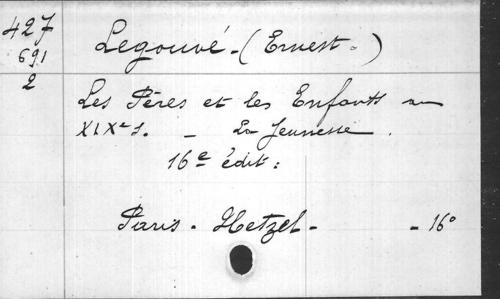 427
691
2
Legouvé. (Ernest.)
Les Pères et les Enfants au
XIXe s. - La Jeunesse.
16e édit:
Paris. Hetzel. - 16°